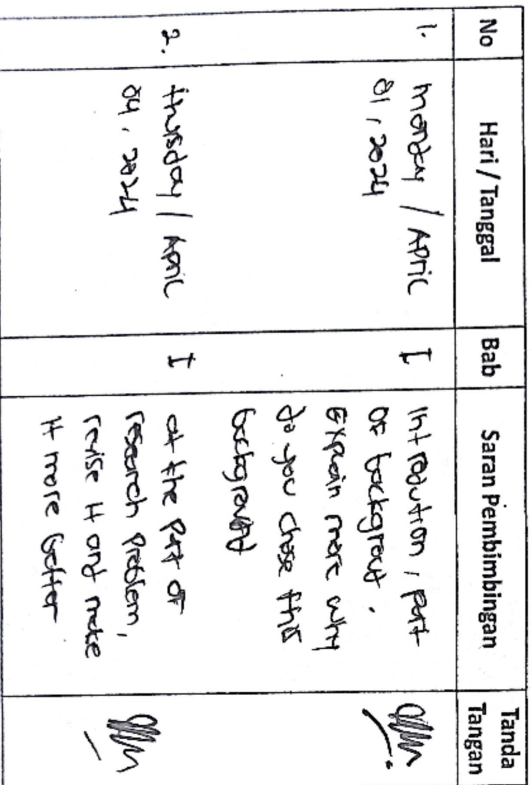 No
Hari / Tanggal
Bab
Saran Pembimbingan
Tanda
Tangan
1.
monday / April
01, 2024
I
Introdution, part
of backgrout.
Explain more why
do you chose this
background
2.
thursday / April
04, 2024
I
at the part of
research problem,
revise it and make
it more better